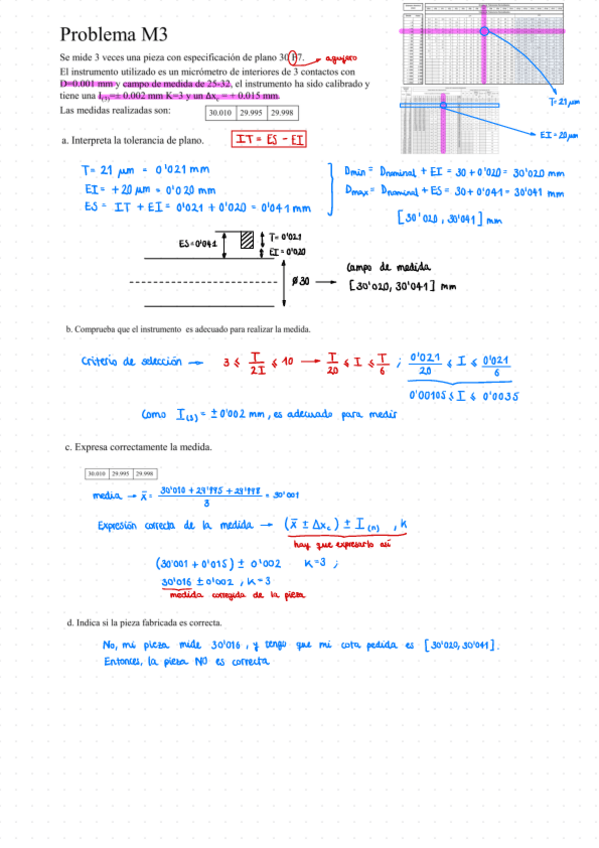 Problema M3
Se mide 3 veces una pieza con especificación de plano 30 F7. → agujero
El instrumento utilizado es un micrómetro de interiores de 3 contactos con
D=0.001 mm y campo de medida de 25-32, el instrumento ha sido calibrado y
tiene una I(3)=± 0.002 mm K=3 y un Δxc = + 0.015 mm.
Las medidas realizadas son: 30.010 29.995 29.998
T= 21 μm
EI = 20 μm
a. Interpreta la tolerancia de plano. IT = ES - EI
T = 21 μm = 0'021 mm
EI = + 20 μm = 0'020 mm
ES = IT + EI = 0'021 + 0'020 = 0'041 mm
Dmin = Dnominal + EI = 30 + 0'020 = 30'020 mm
Dmax = Dnominal + ES = 30 + 0'041 = 30'041 mm
[30'020, 30'041] mm
ES=0'041
T= 0'021
EI = 0'020
Ø30 →
Campo de medida
[30'020, 30'041] mm
b. Comprueba que el instrumento es adecuado para realizar la medida.
Criterio de selección → 3 ≤ T/2I ≤ 10 → T/20 ≤ I ≤ T/6 ; 0'021/20 ≤ I ≤ 0'021/6
0'00105 ≤ I ≤ 0'0035
Como I(3) = ± 0'002 mm, es adecuado para medir
c. Expresa correctamente la medida.
30.010 29.995 29.998
media → x̄ = 30'010 + 29'995 + 29'998 / 3 = 30'001
Expresión correcta de la medida → (x̄ ± Δxc) ± I(n) , K
hay que expresarlo así
(30'001 + 0'015) ± 0'002 K=3 ;
30'016 ± 0'002 , K=3
medida corregida de la pieza
d. Indica si la pieza fabricada es correcta.
No, mi pieza mide 30'016, y tengo que mi cota pedida es [30'020, 30'041].
Entonces, la pieza NO es correcta